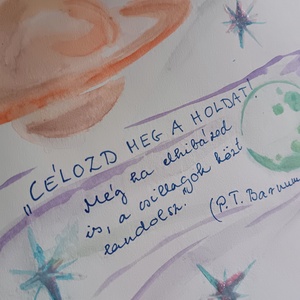 „CÉLOZD MEG A HOLDAT!
Még ha elhibázod
is, a csillagok közt
landolsz.
(P.T. Barnum